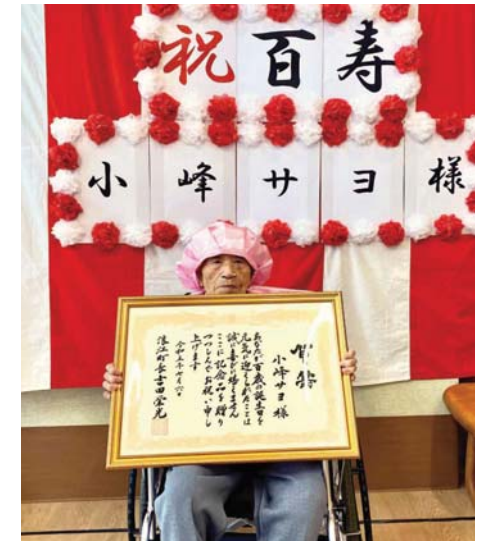 祝百寿
小峰サヨ様
賀詞
小峰サヨ様
あなたが百歳の誕生日を
元気に迎えられたことは
誠に喜びに堪えません
ここに記念品を贈り
つつしんでお祝い申し
上げます
令和五年七月六日
浪江町長吉田栄光